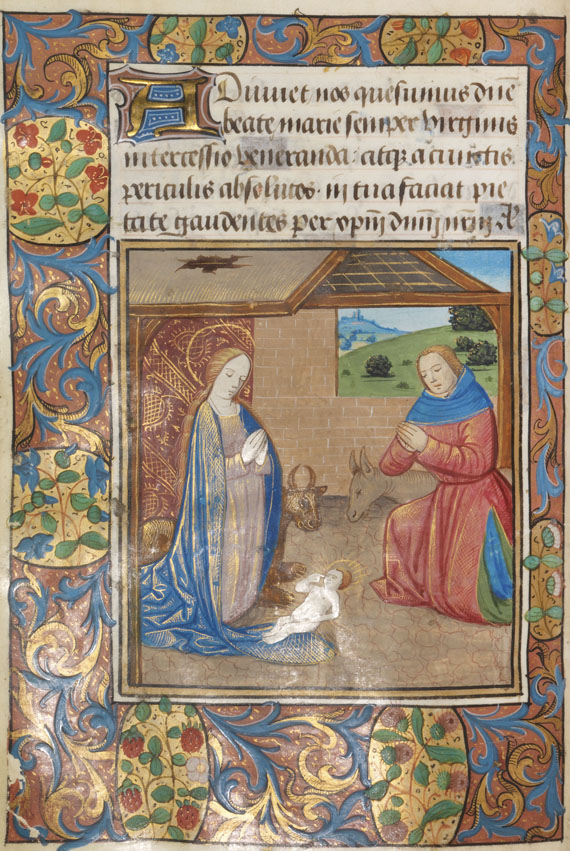 Adiuvet nos quesumus dn̄e
beate marie semper virginis
intercessio veneranda: atqꝫ a cunctis
periculis absolutos · in tua faciat pie
tate gaudentes per xp̄m dn̄m nr̄m